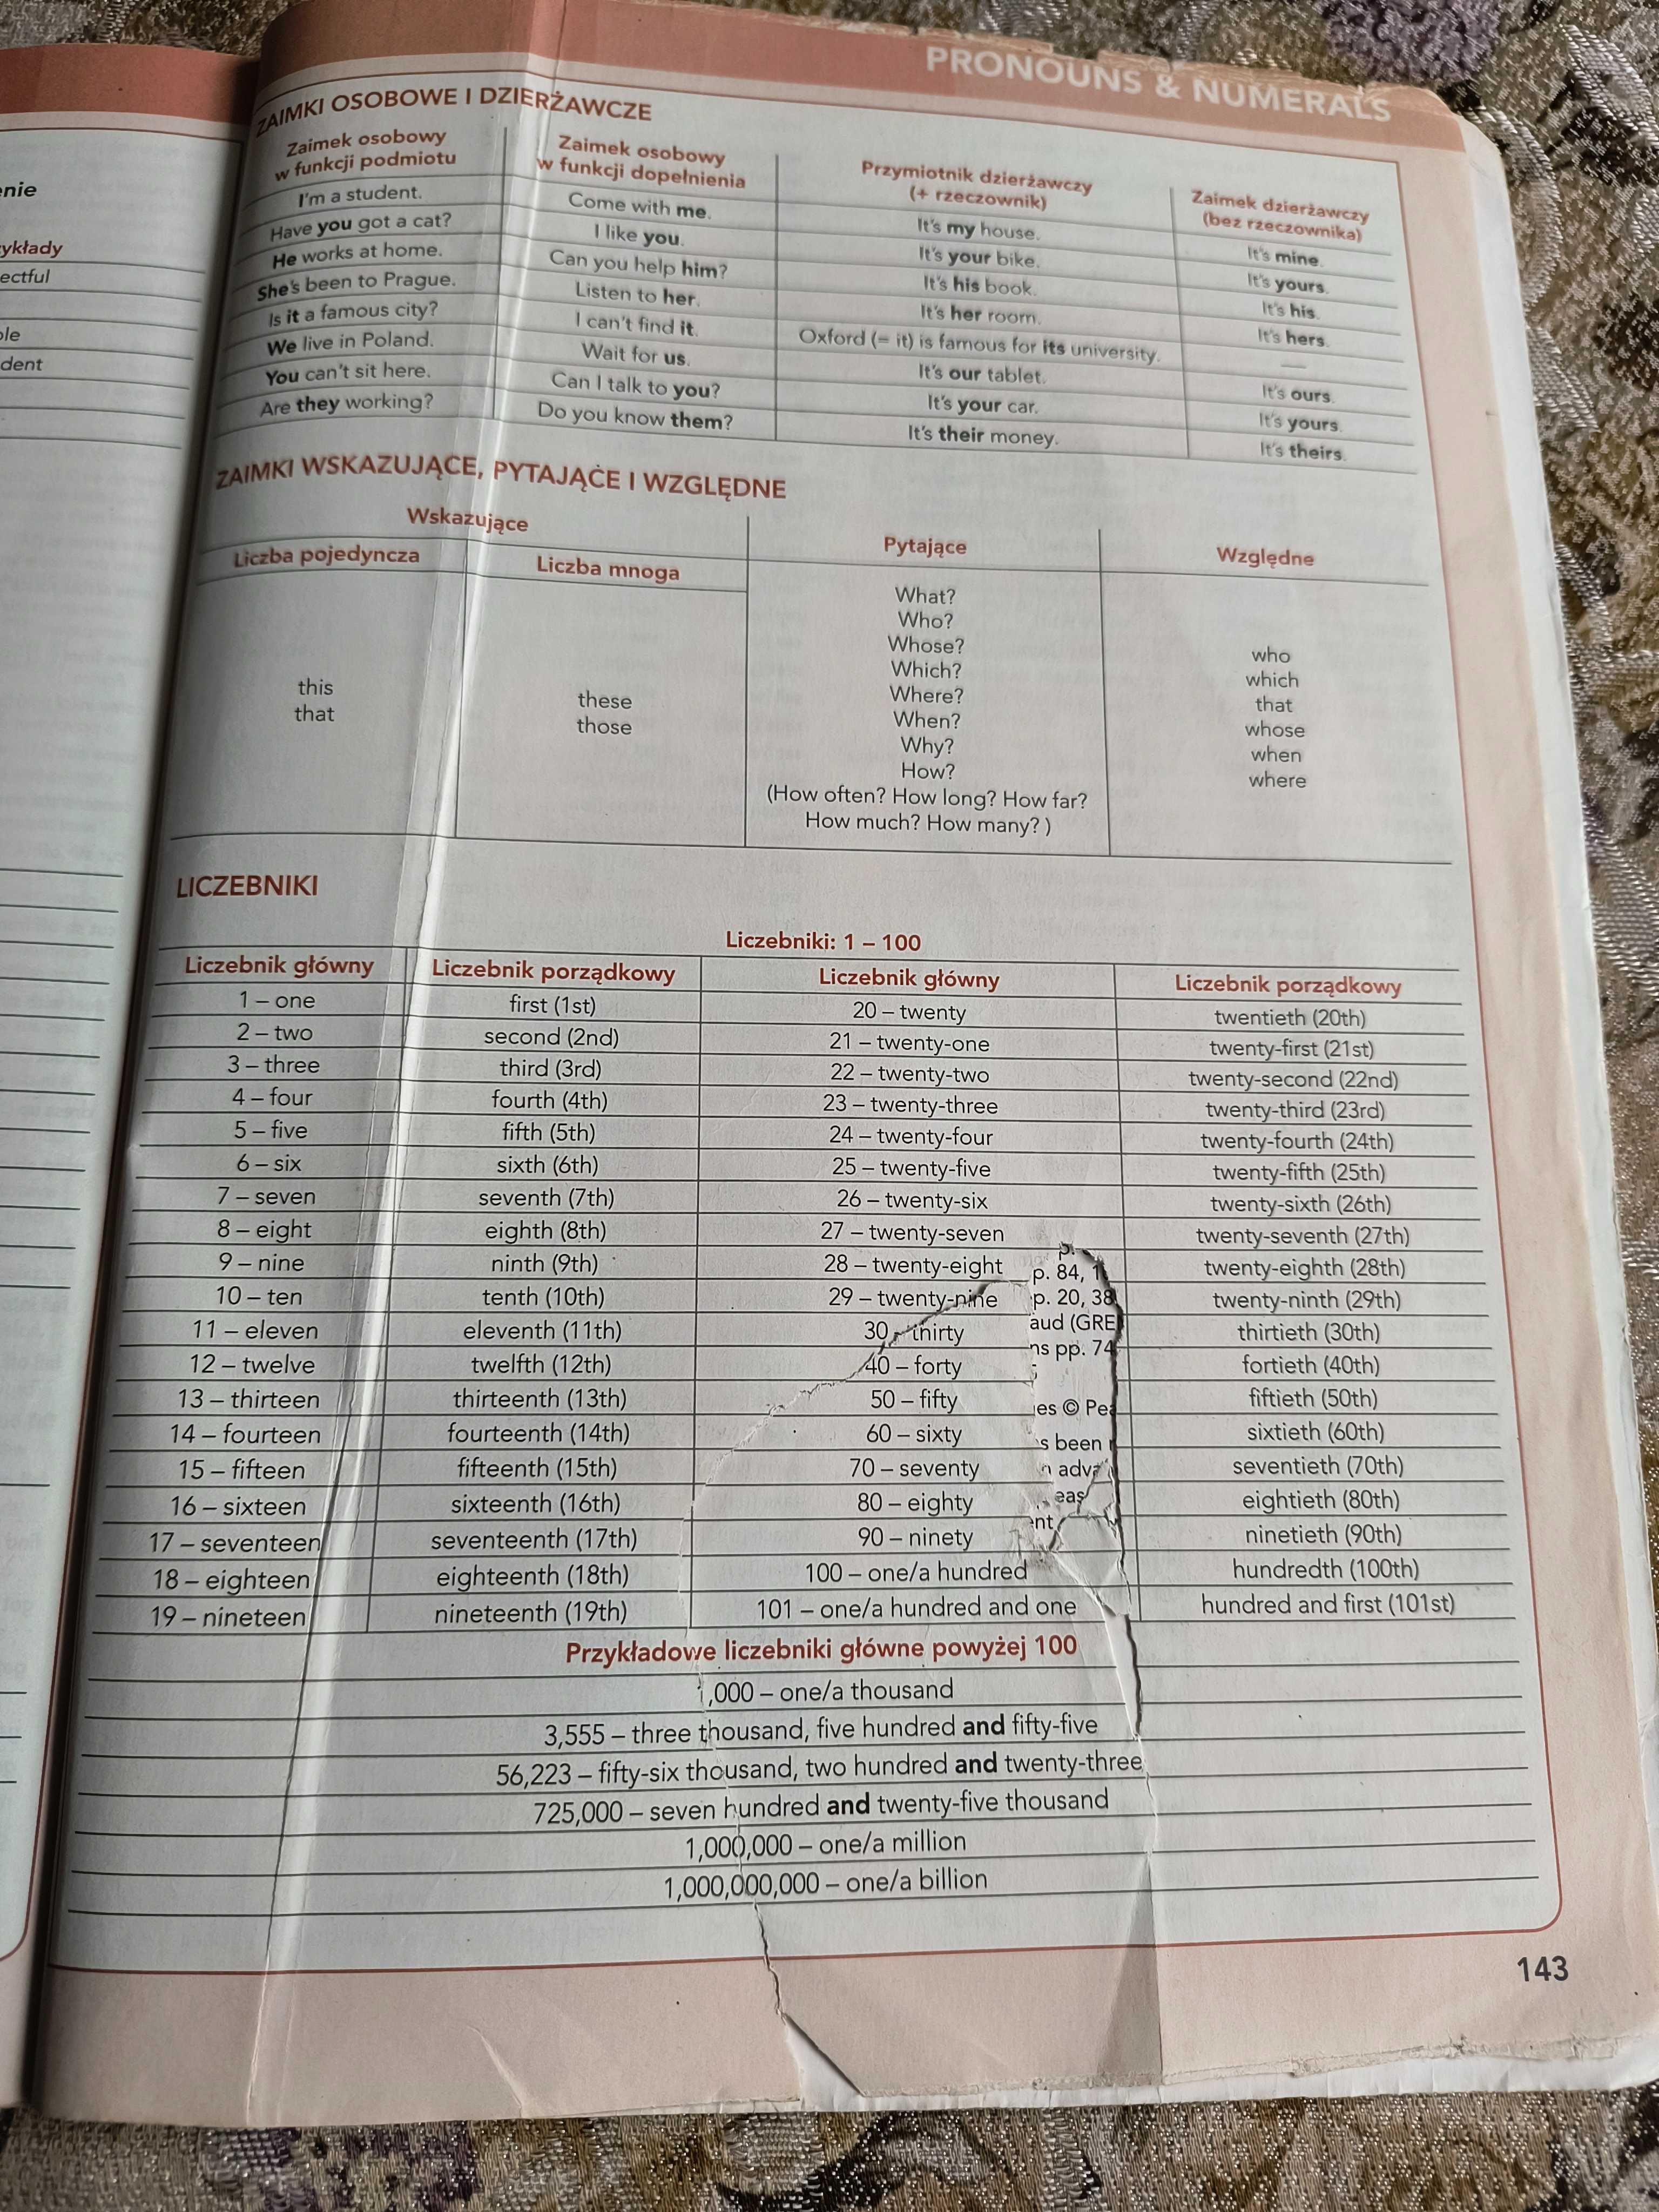 PRONOUNS & NUMERALS
ZAIMKI OSOBOWE I DZIERŻAWCZE
Zaimek osobowy w funkcji podmiotu | Zaimek osobowy w funkcji dopełnienia | Przymiotnik dzierżawczy (+ rzeczownik) | Zaimek dzierżawczy (bez rzeczownika)
I'm a student. | Come with me. | It's my house. | It's mine.
Have you got a cat? | I like you. | It's your bike. | It's yours.
He works at home. | Can you help him? | It's his book. | It's his.
She's been to Prague. | Listen to her. | It's her room. | It's hers.
Is it a famous city? | I can't find it. | Oxford (= it) is famous for its university. | —
We live in Poland. | Wait for us. | It's our tablet. | It's ours.
You can't sit here. | Can I talk to you? | It's your car. | It's yours.
Are they working? | Do you know them? | It's their money. | It's theirs.
ZAIMKI WSKAZUJĄCE, PYTAJĄCE I WZGLĘDNE
Wskazujące | Pytające | Względne
Liczba pojedyncza | Liczba mnoga
this
that
these
those
What?
Who?
Whose?
Which?
Where?
When?
Why?
How?
(How often? How long? How far?
How much? How many? )
who
which
that
whose
when
where
LICZEBNIKI
Liczebniki: 1 – 100
Liczebnik główny | Liczebnik porządkowy | Liczebnik główny | Liczebnik porządkowy
1 – one | first (1st) | 20 – twenty | twentieth (20th)
2 – two | second (2nd) | 21 – twenty-one | twenty-first (21st)
3 – three | third (3rd) | 22 – twenty-two | twenty-second (22nd)
4 – four | fourth (4th) | 23 – twenty-three | twenty-third (23rd)
5 – five | fifth (5th) | 24 – twenty-four | twenty-fourth (24th)
6 – six | sixth (6th) | 25 – twenty-five | twenty-fifth (25th)
7 – seven | seventh (7th) | 26 – twenty-six | twenty-sixth (26th)
8 – eight | eighth (8th) | 27 – twenty-seven | twenty-seventh (27th)
9 – nine | ninth (9th) | 28 – twenty-eight | twenty-eighth (28th)
10 – ten | tenth (10th) | 29 – twenty-nine | twenty-ninth (29th)
11 – eleven | eleventh (11th) | 30 – thirty | thirtieth (30th)
12 – twelve | twelfth (12th) | 40 – forty | fortieth (40th)
13 – thirteen | thirteenth (13th) | 50 – fifty | fiftieth (50th)
14 – fourteen | fourteenth (14th) | 60 – sixty | sixtieth (60th)
15 – fifteen | fifteenth (15th) | 70 – seventy | seventieth (70th)
16 – sixteen | sixteenth (16th) | 80 – eighty | eightieth (80th)
17 – seventeen | seventeenth (17th) | 90 – ninety | ninetieth (90th)
18 – eighteen | eighteenth (18th) | 100 – one/a hundred | hundredth (100th)
19 – nineteen | nineteenth (19th) | 101 – one/a hundred and one | hundred and first (101st)
p. 84,
p. 20, 38
aud (GRE
ns pp. 74
es © Pea
s been
n adva
eas
ent
Przykładowe liczebniki główne powyżej 100
1,000 – one/a thousand
3,555 – three thousand, five hundred and fifty-five
56,223 – fifty-six thousand, two hundred and twenty-three
725,000 – seven hundred and twenty-five thousand
1,000,000 – one/a million
1,000,000,000 – one/a billion
143
enie
ykłady
ectful
ole
dent